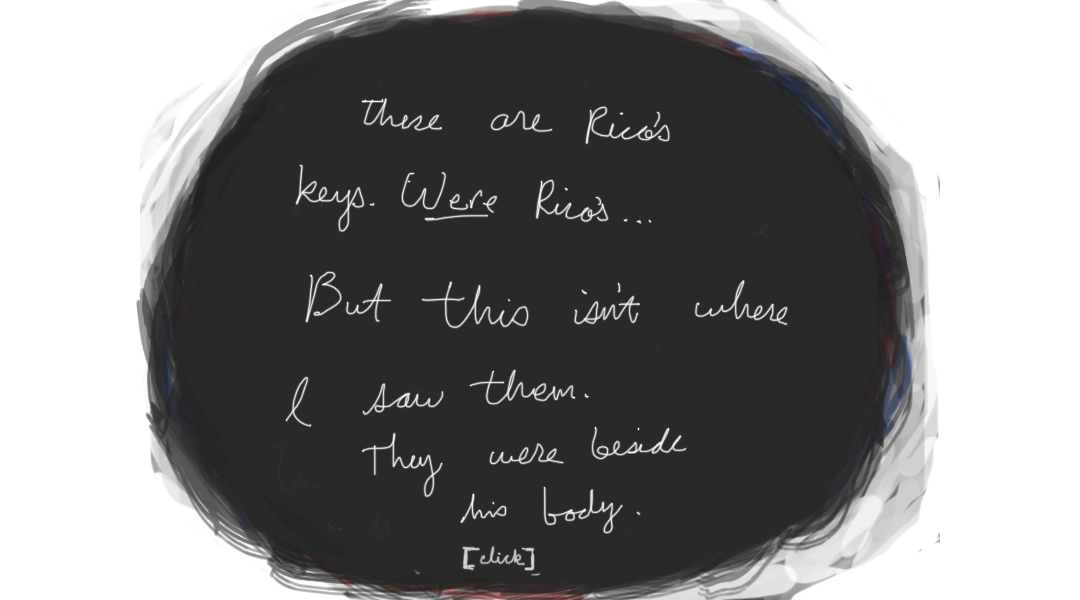 These are Rico's
keys. Were Rico's...
But this isn't where
I saw them.
They were beside
his body.
[click]